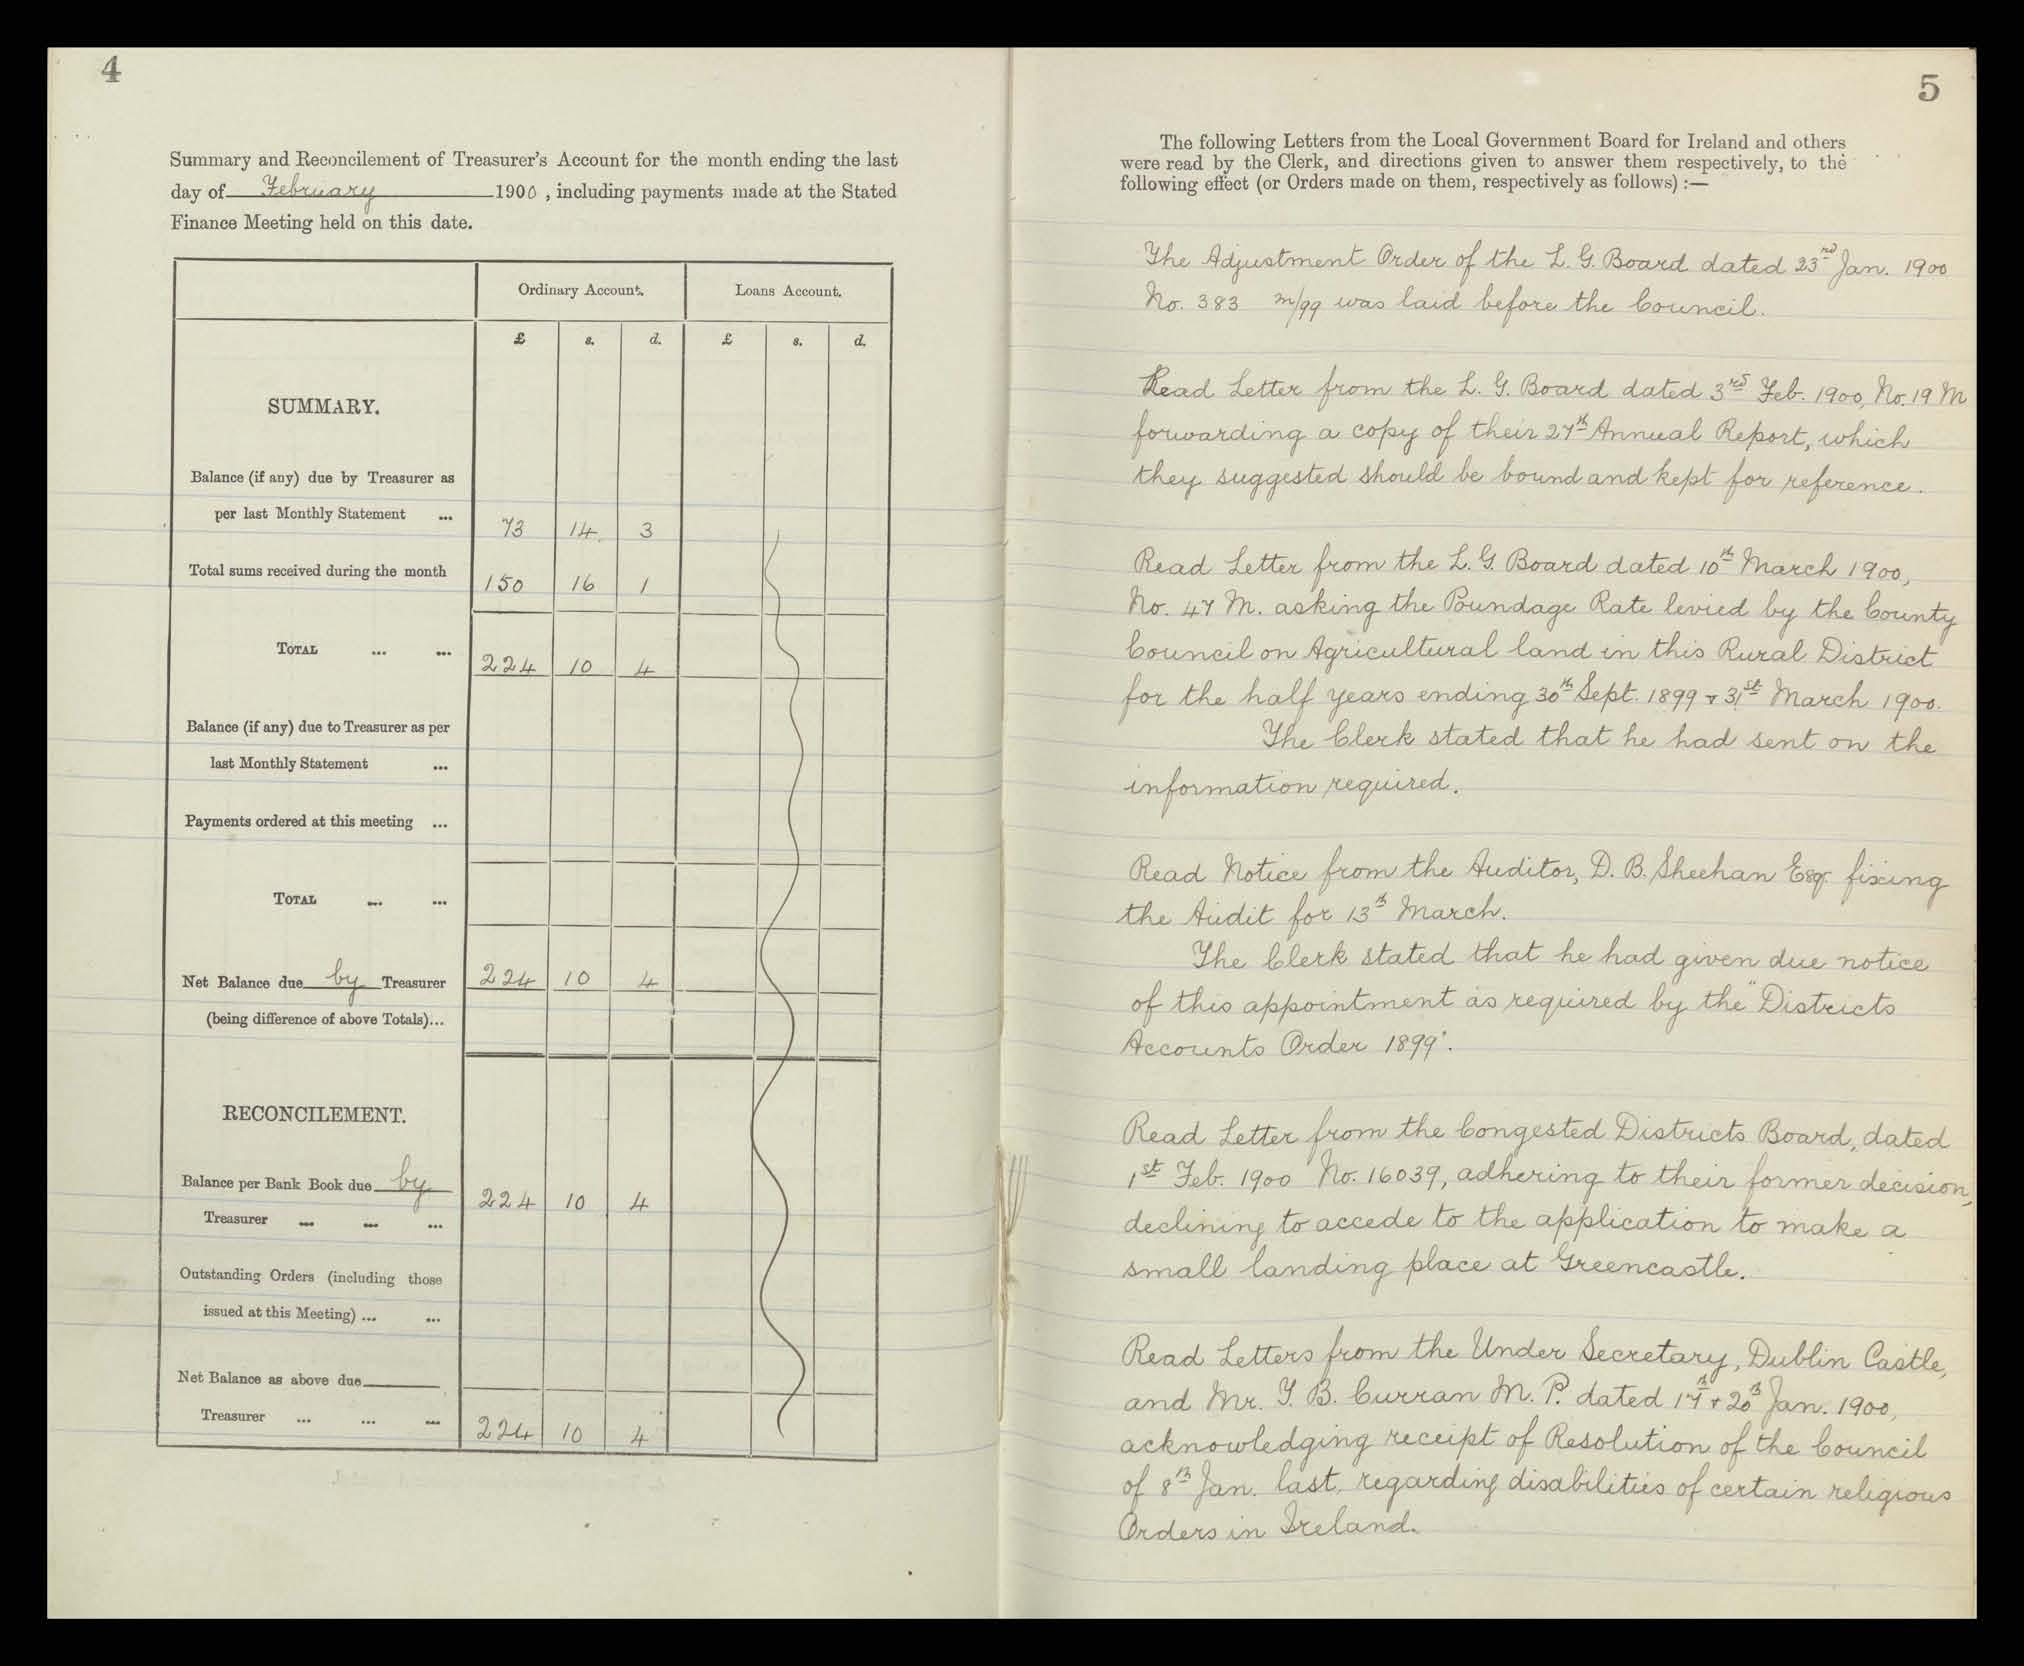 4
Summary and Reconcilement of Treasurer's Account for the month ending the last
day of February 1900, including payments made at the Stated
Finance Meeting held on this date.
Ordinary Account. Loans Account.
£ s. d. £ s. d.
SUMMARY.
Balance (if any) due by Treasurer as
per last Monthly Statement ... 73 14 3
Total sums received during the month 150 16 1
TOTAL ... ... 224 10 4
Balance (if any) due to Treasurer as per
last Monthly Statement ...
Payments ordered at this meeting ...
TOTAL ... ...
Net Balance due by Treasurer 224 10 4
(being difference of above Totals)...
RECONCILEMENT.
Balance per Bank Book due by 224 10 4
Treasurer ... ... ...
Outstanding Orders (including those
issued at this Meeting) ... ...
Net Balance as above due
Treasurer ... ... ... 224 10 4
5
The following Letters from the Local Government Board for Ireland and others
were read by the Clerk, and directions given to answer them respectively, to the
following effect (or Orders made on them, respectively as follows) :—
The Adjustment Order of the L. G. Board dated 23rd Jan. 1900
No. 383 m/99 was laid before the Council.
Read Letter from the L. G. Board dated 3rd Feb. 1900, No. 19 M
forwarding a copy of their 27th Annual Report, which
they suggested should be bound and kept for reference.
Read Letter from the L. G. Board dated 10th March 1900,
No. 47 M. asking the Poundage Rate levied by the County
Council on Agricultural land in this Rural District
for the half years ending 30th Sept. 1899 & 31st March 1900.
The Clerk stated that he had sent on the
information required.
Read Notice from the Auditor, D. B. Sheehan Esqr. fixing
the Audit for 13th March.
The Clerk stated that he had given due notice
of this appointment as required by the "Districts
Accounts Order 1899".
Read Letter from the Congested Districts Board, dated
1st Feb. 1900 No. 16039, adhering to their former decision,
declining to accede to the application to make a
small landing place at Greencastle.
Read Letters from the Under Secretary, Dublin Castle,
and Mr. T. B. Curran M. P. dated 17th & 20th Jan. 1900,
acknowledging receipt of Resolution of the Council
of 8th Jan. last, regarding disabilities of certain religious
Orders in Ireland.